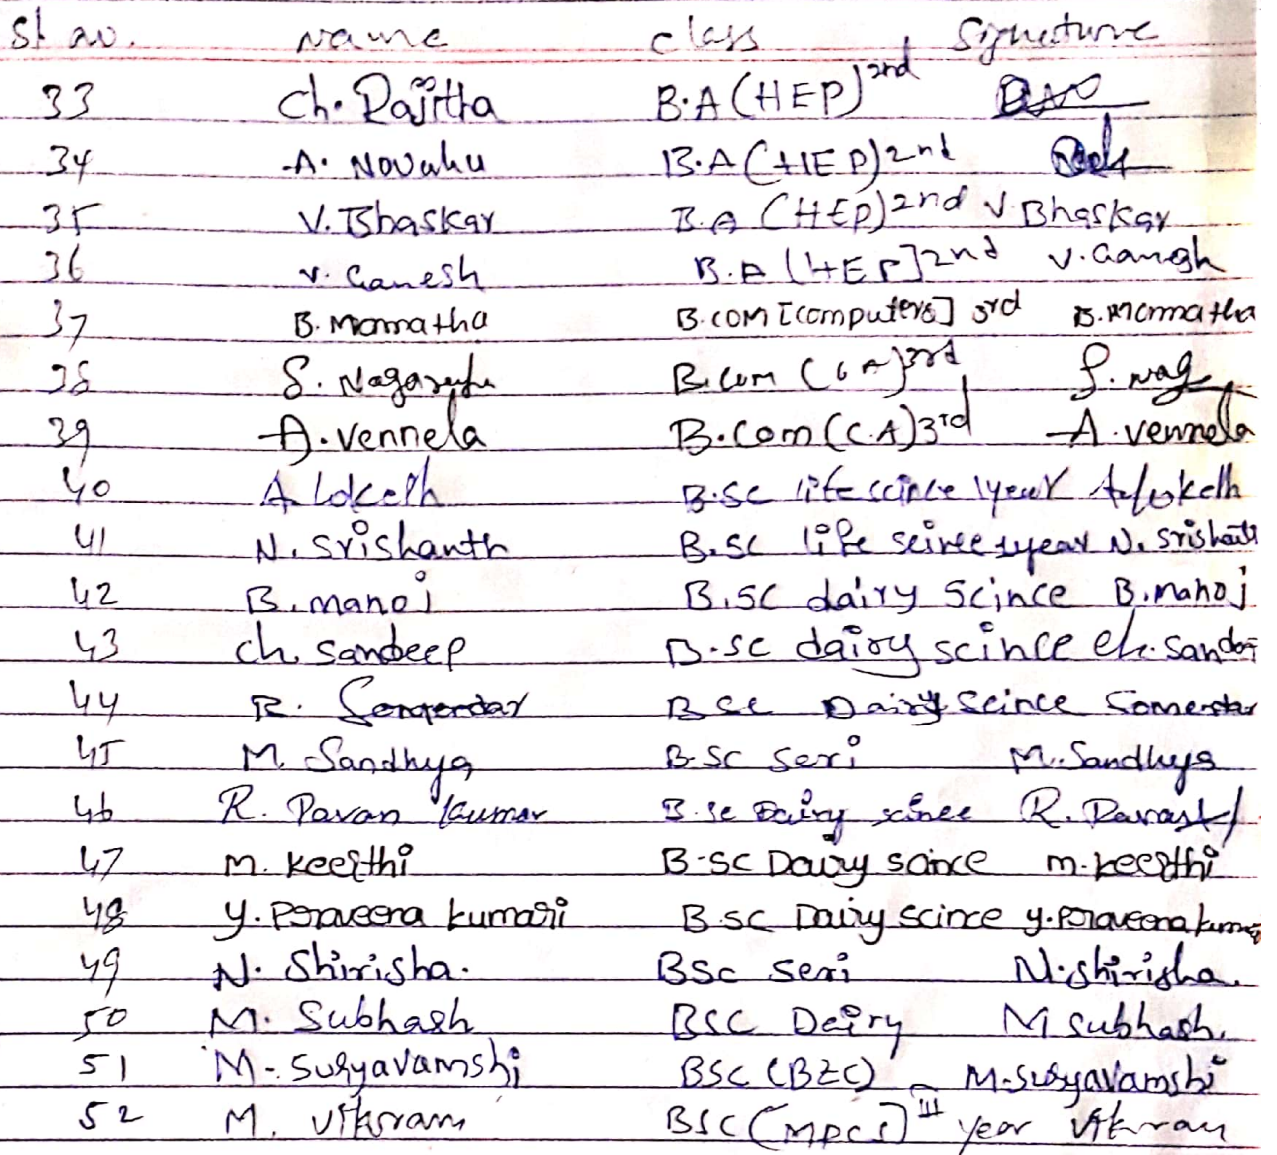 Sl no. Name Class Signature
33 Ch. Rajitha B.A (HEP) 2nd
34 A. Novahu B.A (HEP) 2nd
35 V. Bhaskar B.A (HEP) 2nd V. Bhaskar
36 V. Ganesh B.A [HEP] 2nd V. Ganesh
37 B. Mamatha B.COM [computers] 3rd B. Mamatha
38 S. Nagaraju B.com (CA) 3rd S. Nag
39 A. Vennela B.Com (C.A) 3rd A. Vennela
40 A. Lokesh B.SC life scince 1 year A. Lokesh
41 N. Srishanth B.SC life seince year N. Srishanth
42 B. manoj B.SC dairy Scince B. manoj
43 ch. Sandeep B.SC dairy scince ch. Sandeep
44 R. BSC Dairy Scince
45 M. Sandhya B.SC Seri M. Sandhya
46 R. Pavan Kumar B.Sc Dairy R. Pavan
47 M. Keerthi B.SC Dairy saince M. Keerthi
48 Y. Praveena kumari B.SC Dairy scince Y. Praveena kuma
49 N. Shirisha. BSc Seri N. Shirisha.
50 M. Subhash BSC Deiry M Subhash.
51 M. Suryavamshi BSC (BZC) M. Suryavamshi
52 M. Vikram BSC (MPCS) III year Vikram